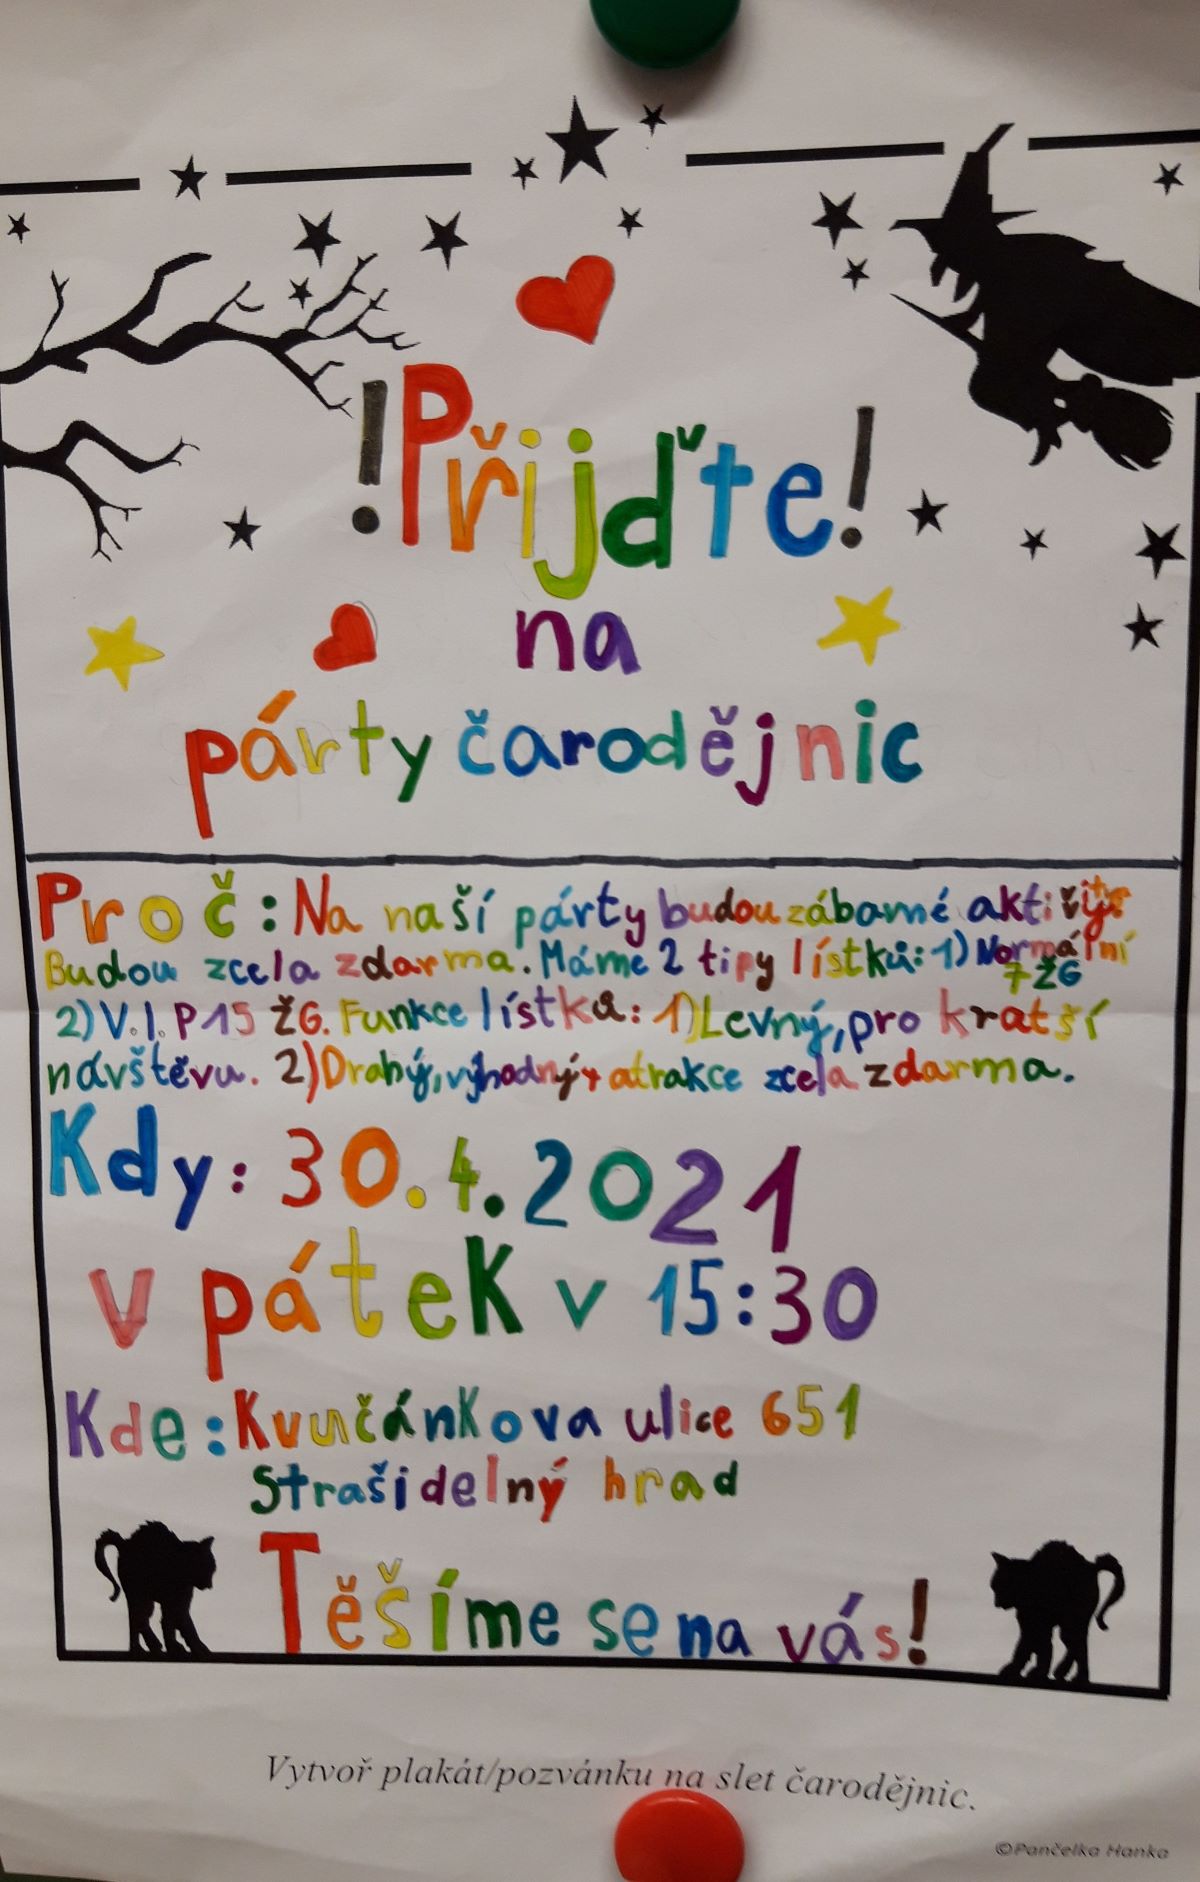 !Přijďte!
na
párty čarodějnic
Proč: Na naší párty budou zábavné aktivity.
Budou zcela zdarma. Máme 2 tipy lístků: 1) Normální
7 ŽG
2) V.I.P 15 ŽG. Funkce lístků: 1) Levný, pro kratší
návštěvu. 2) Drahý, výhodný + atrakce zcela zdarma.
Kdy: 30.4.2021
v pátek v 15:30
Kde: ulice 651
Strašidelný hrad
Těšíme se na vás!
Vytvoř plakát/pozvánku na slet čarodějnic.
©Pančelka Hanka